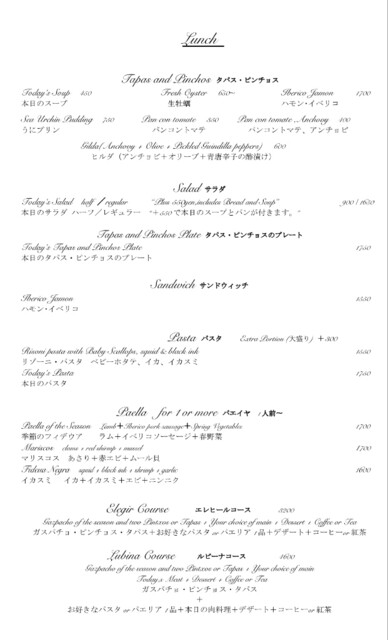 Lunch
Tapas and Pinchos タパス・ピンチョス
Today's Soup 450 Fresh Oyster 650~ Iberico Jamon 1700
本日のスープ 生牡蠣 ハモン・イベリコ
Sea Urchin Pudding 750 Pan con tomate 350 Pan con tomate Anchovy 400
うにプリン パンコントマテ パンコントマテ、アンチョビ
Gilda( Anchovy + Olive + Pickled Guindilla peppers) 600
ヒルダ (アンチョビ+オリーブ+青唐辛子の酢漬け)
Salad サラダ
Today's Salad half / regular "Plus 550yen,includes Bread and Soup" 900 / 1650
本日のサラダ ハーフ/レギュラー "+550で本日のスープとパンが付きます。"
Tapas and Pinchos Plate タパス・ピンチョスのプレート
Today's Tapas and Pinchos Plate 1750
本日のタパス・ピンチョスのプレート
Sandwich サンドウィッチ
Iberico Jamon 1550
ハモン・イベリコ
Pasta パスタ Extra Portion (大盛り) +300
Risoni pasta with Baby Scallops, squid & black ink 1550
リゾーニ・パスタ ベビーホタテ、イカ、イカスミ
Today's Pasta 1750
本日のパスタ
Paella for 1 or more パエイヤ 1人前~
Paella of the Season Lamb+Iberico pork sausage+Spring Vegetables 1700
季節のフィデウア ラム+イベリコソーセージ+春野菜
Mariscos clams + red shrimp + mussel 1700
マリスコス あさり+赤エビ+ムール貝
Fideua Negra squid + black ink + shrimp + garlic 1600
イカスミ イカ+イカスミ+エビ+ニンニク
Elegir Course エレヒールコース 3200
Gazpacho of the season and two Pintxos or Tapas + Your choice of main + Dessert + Coffee or Tea
ガスパチョ・ピンチョス・タパス+お好きなパスタ or パエリア 1品+デザート+コーヒー or 紅茶
Lubina Course ルビーナコース 4600
Gazpacho of the season and two Pintxos or Tapas + Your choice of main
Today,s Meat + Dessert + Coffee or Tea
ガスパチョ・ピンチョス・タパス
+
お好きなパスタ or パエリア 1品+本日の肉料理+デザート+コーヒー or 紅茶